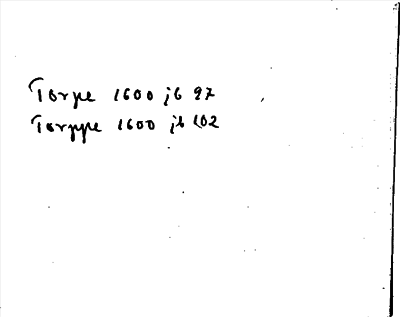 Torpe 1600 jb 97
Torppe 1600 jb 102